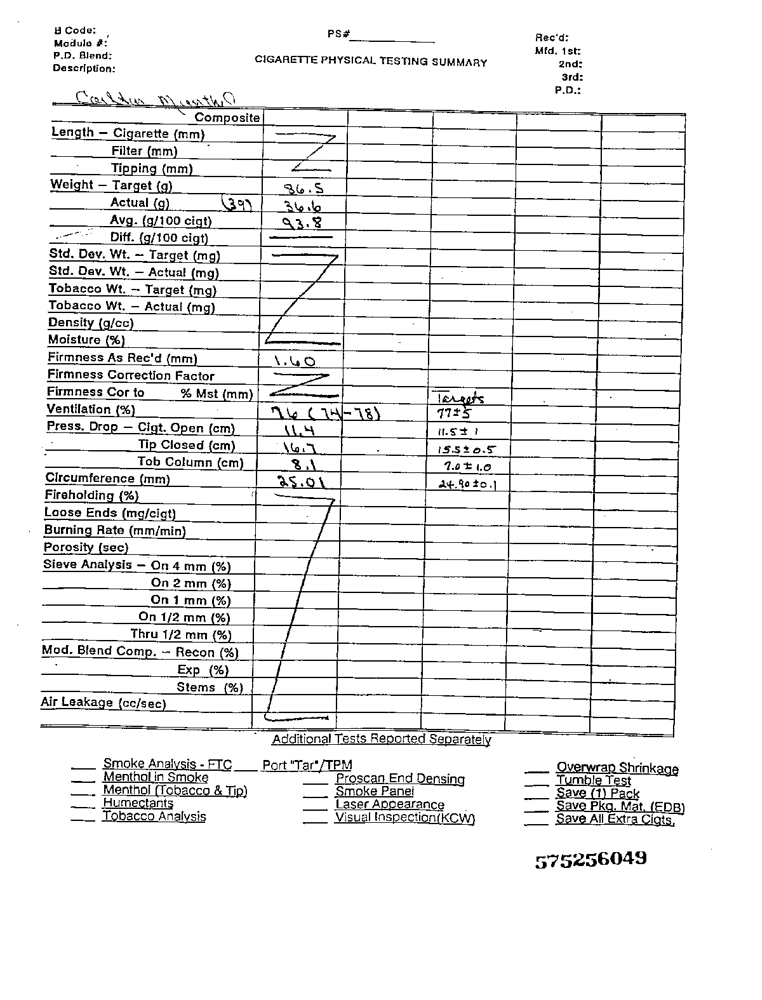 B Code:
PS#
Rec'd:
Module #:
Mfd. 1st:
P.D. Blend:
CIGARETTE PHYSICAL TESTING SUMMARY
2nd:
Description:
3rd:
P.D.:
Carlton Menthol
Composite
Length – Cigarette (mm)
Filter (mm)
Tipping (mm)
Weight – Target (g) 86.5
Actual (g) (39) 36.6
Avg. (g/100 cigt) 93.8
Diff. (g/100 cigt)
Std. Dev. Wt. – Target (mg)
Std. Dev. Wt. – Actual (mg)
Tobacco Wt. – Target (mg)
Tobacco Wt. – Actual (mg)
Density (g/cc)
Moisture (%)
Firmness As Rec'd (mm) 1.60
Firmness Correction Factor
Firmness Cor to % Mst (mm) Targets
Ventilation (%) 76 (74-78) 77±5
Press. Drop – Cigt. Open (cm) 11.4 11.5 ± 1
Tip Closed (cm) 16.7 15.5±0.5
Tob Column (cm) 8.1 7.0 ± 1.0
Circumference (mm) 25.01 24.90±0.1
Fireholding (%)
Loose Ends (mg/cigt)
Burning Rate (mm/min)
Porosity (sec)
Sieve Analysis – On 4 mm (%)
On 2 mm (%)
On 1 mm (%)
On 1/2 mm (%)
Thru 1/2 mm (%)
Mod. Blend Comp. – Recon (%)
Exp (%)
Stems (%)
Air Leakage (cc/sec)
Additional Tests Reported Separately
Smoke Analysis - FTC Port "Tar"/TPM Overwrap Shrinkage
Menthol in Smoke Proscan End Densing Tumble Test
Menthol (Tobacco & Tip) Smoke Panel Save (1) Pack
Humectants Laser Appearance Save Pkg. Mat. (EDB)
Tobacco Analysis Visual Inspection(KCW) Save All Extra Cigts.
575256049